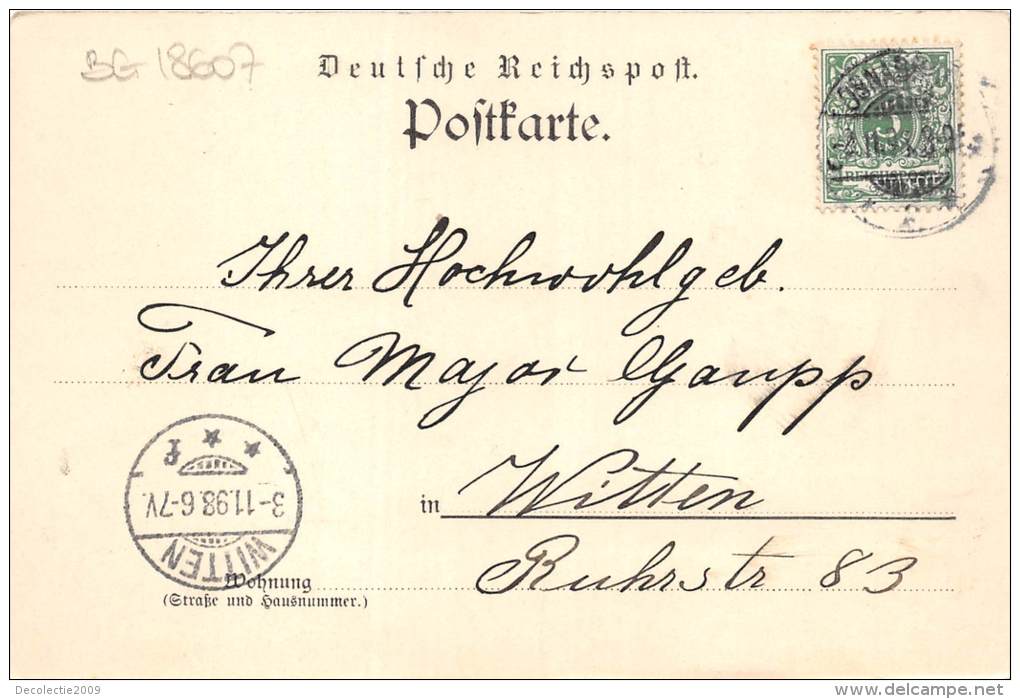 BG 18607
Deutsche Reichspost.
Postkarte.
5
REICHSPOST
Ihrer Hochwohlgeb.
Frau Major Gaupp
in Witten
Ruhrstr 83
WITTEN
3-11.98.6-7V.
Wohnung
(Straße und Hausnummer.)
Decolectie2009
www.delcampe.net